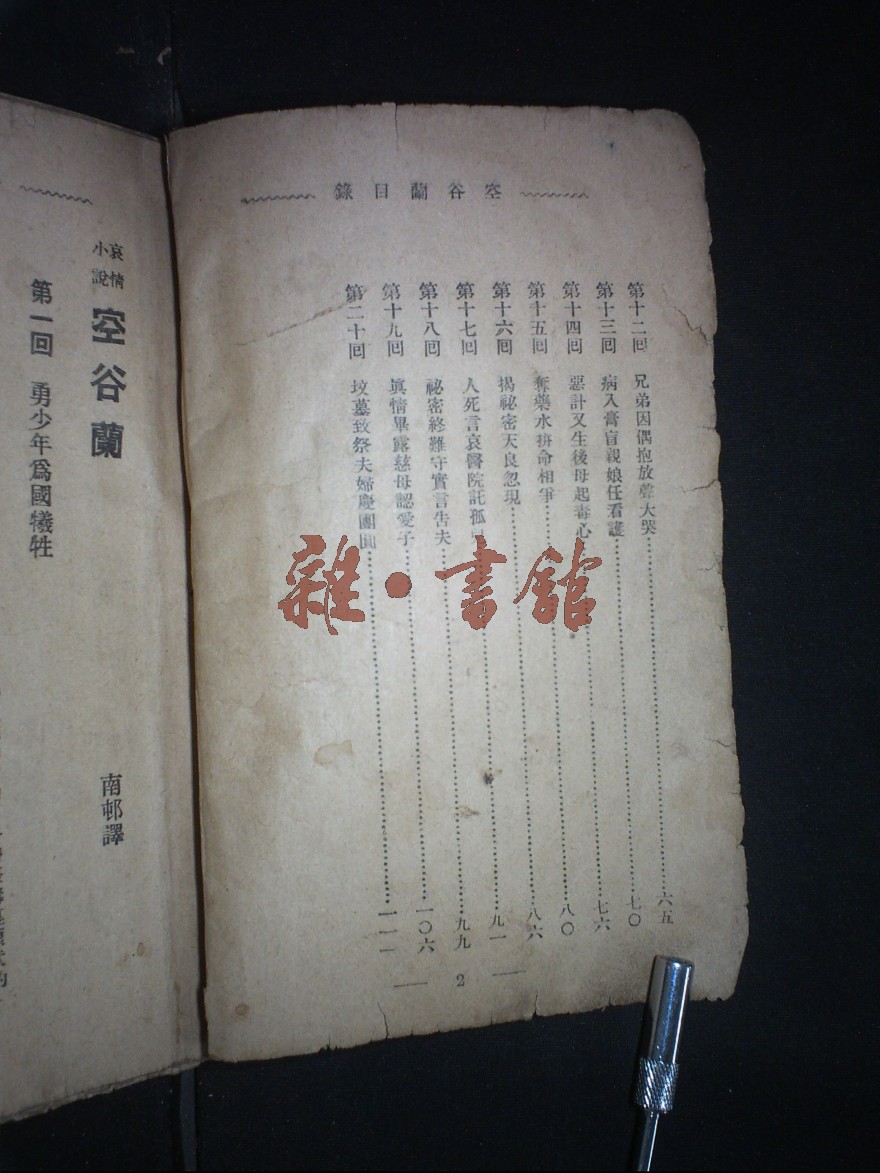 空谷蘭目錄
第十二回 兄弟因偶抱放聲大哭……六五
第十三回 病入膏盲親娘任看護……七〇
第十四回 惡計又生後母起毒心……七六
第十五回 奪藥水拚命相爭……八〇
第十六回 揭祕密天良忽現……八六
第十七回 人死言哀醫院託孤……九一
第十八回 祕密終難守實言告夫……九九
第十九回 眞情畢露慈母認愛子……一〇六
第二十回 坟墓致祭夫婦慶團圓……一一一
2
哀情小說 空谷蘭 南邨譯
第一回 勇少年爲國犧牲
雜·書館